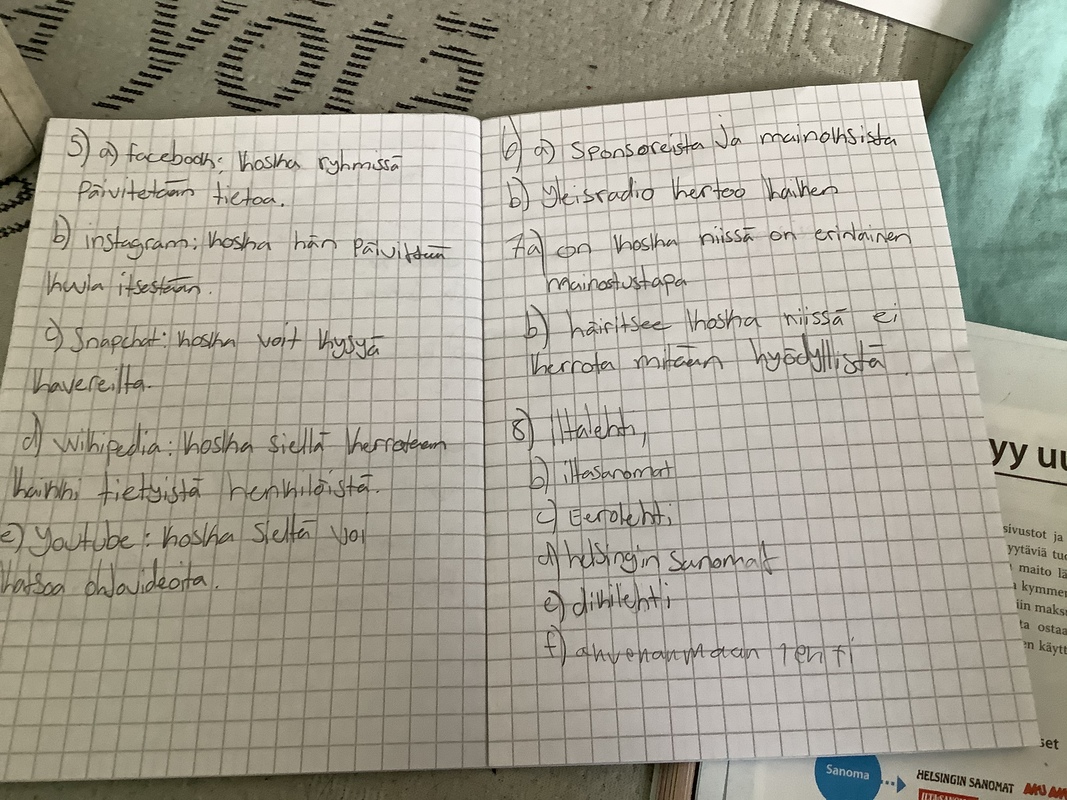 yöti
5) a) facebook: koska ryhmissä
Päivitetään tietoa.
b) instagram: koska hän Päivittää
kuvia itsestään.
c) Snapchat: koska voit kysyä
kavereilta.
d) Wikipedia: koska siellä kerrotaan
kaikki tietyistä henkilöistä.
e) Youtube: koska sieltä voi
katsoa ohjevideoita.
6) a) Sponsoreista ja mainoksista
b) Yleisradio kertoo kaiken
7a) on koska niissä on erinlainen
mainostustapa
b) häiritsee koska niissä ei
kerrota mitään hyödyllistä.
8) iltalehti,
b) iltasanomat
c) Eerolehti
d) helsingin sanomat
e) dikilehti
f) ahvenanmaan lehti
yy uu
sivustot ja
yytäviä tuo
maito lä
kymmen
iin maks
ta ostaa
en käytt
set
Sanoma
HELSINGIN SANOMAT